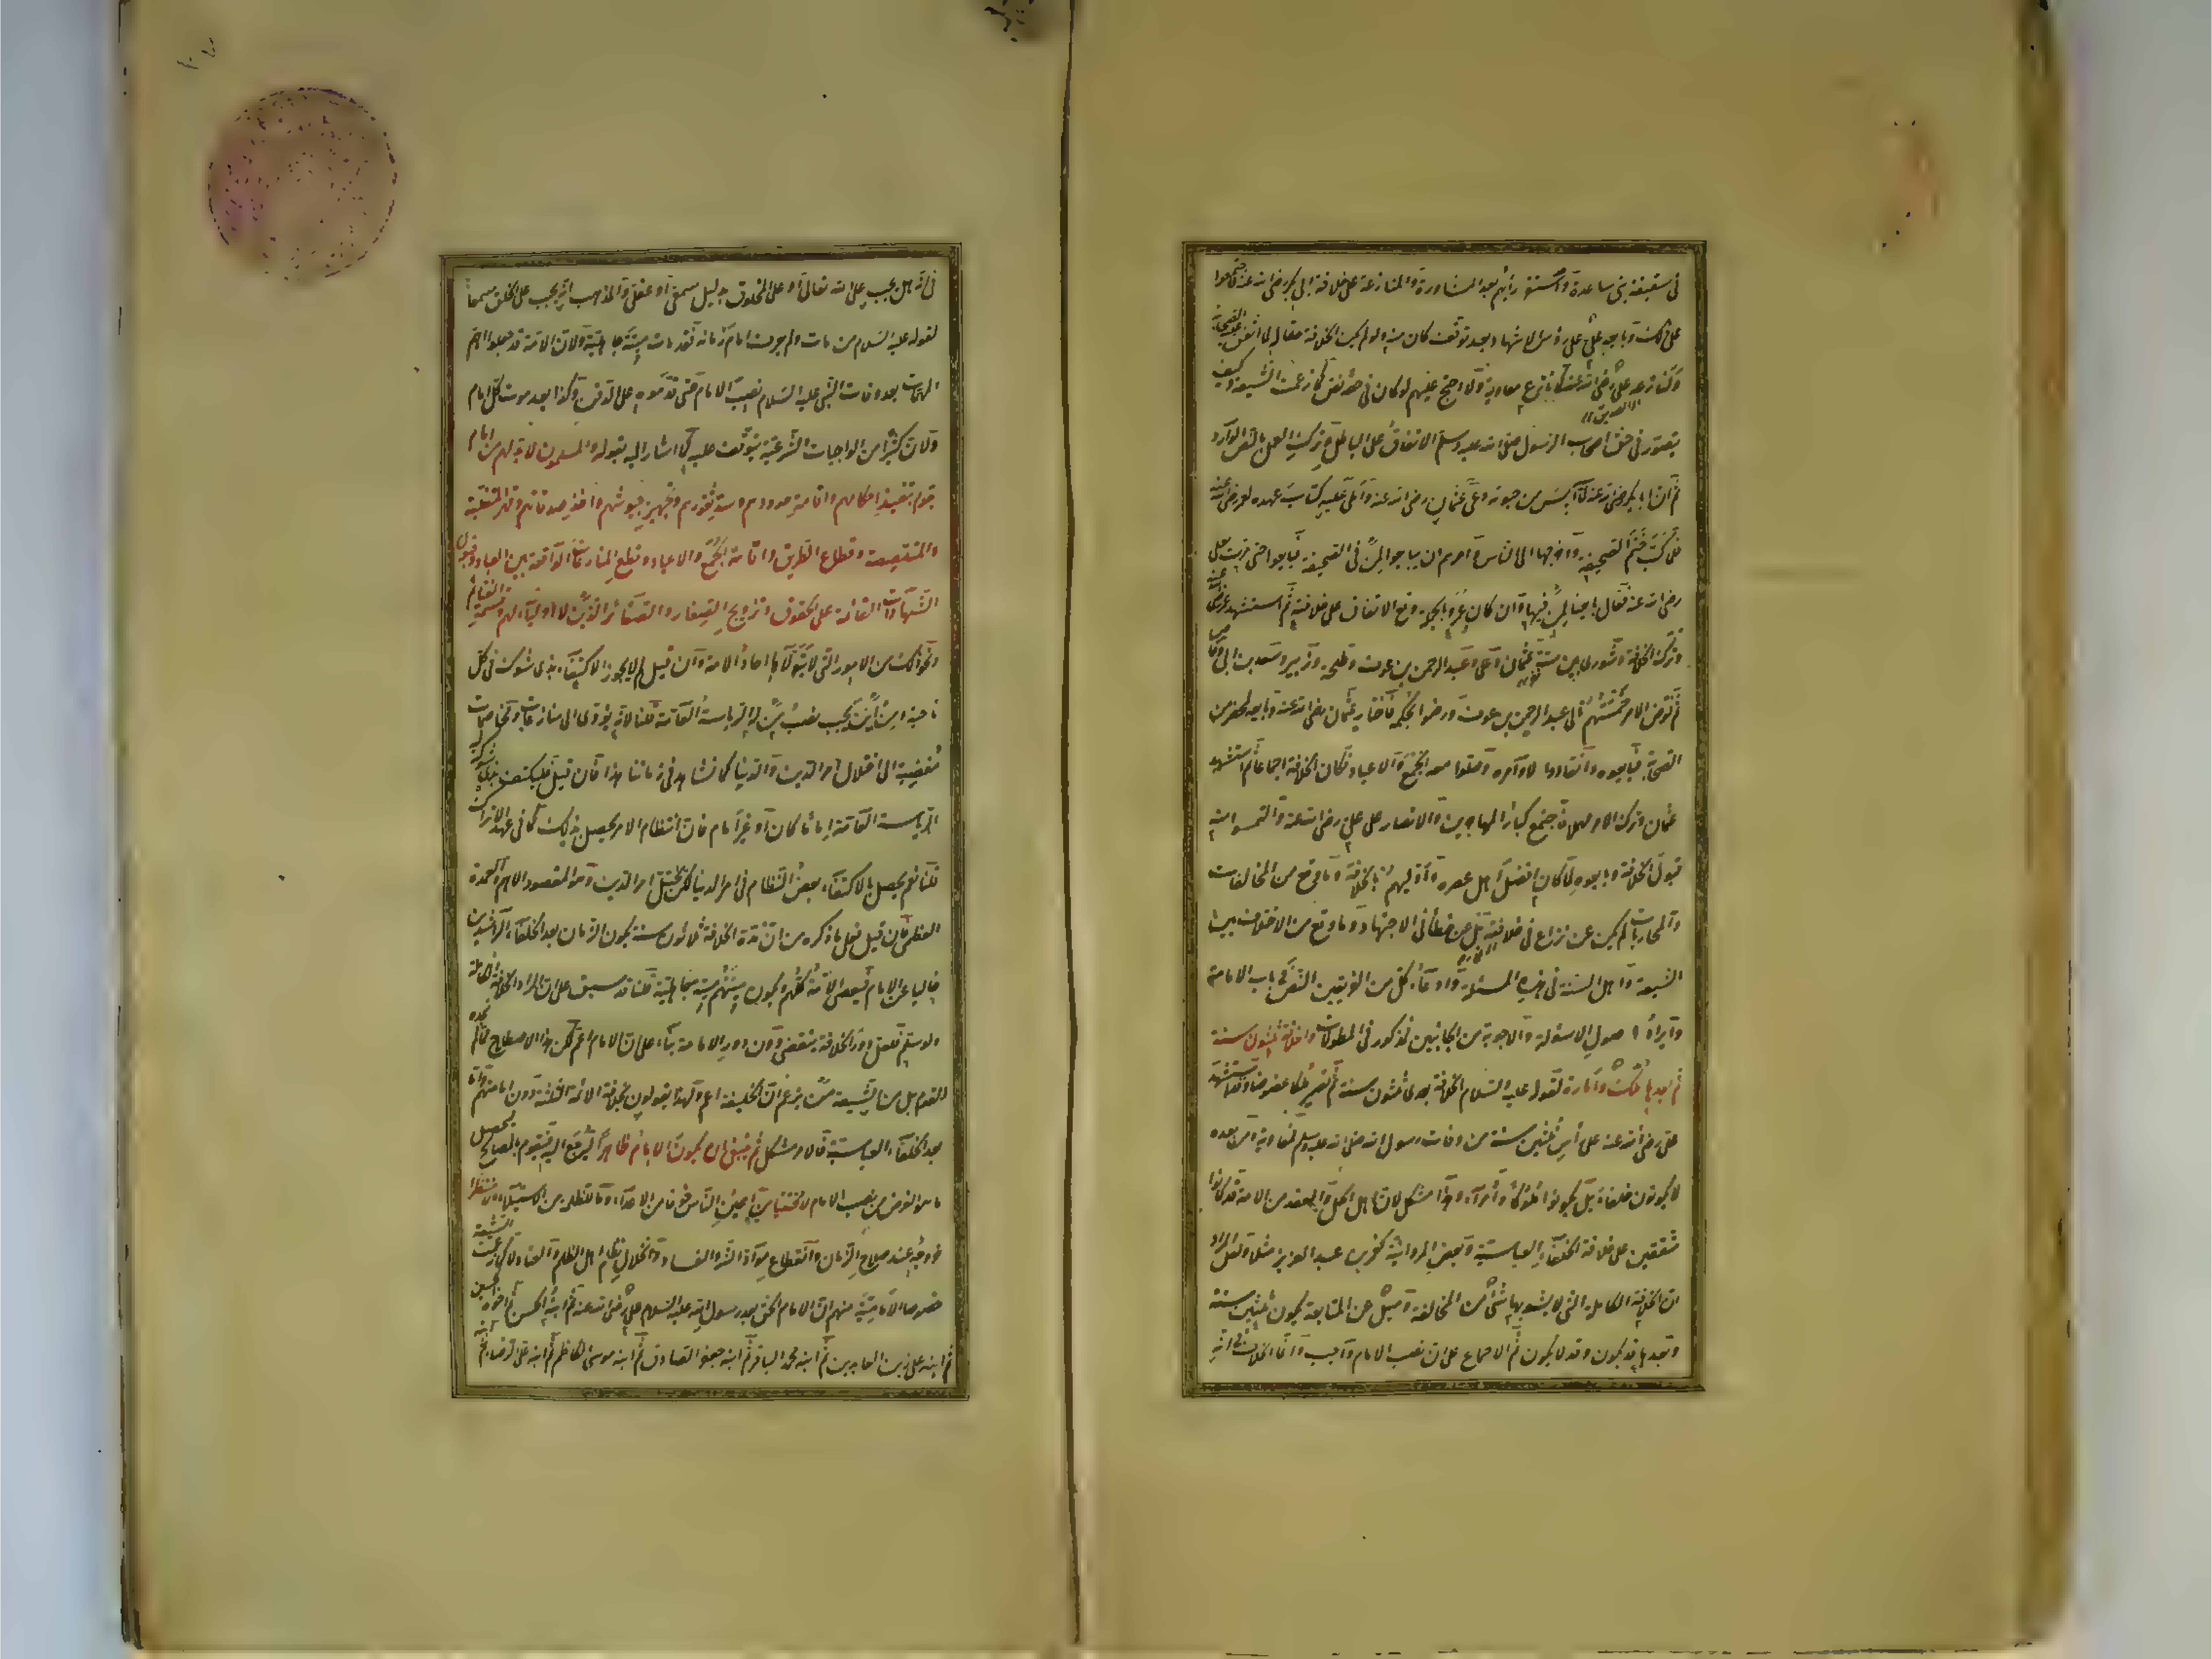 في سقيفة بني ساعدة واستقر رأيهم بعد المشاورة والمنازعة على خلافة ابي بكر رضي الله عنه فاجمعوا
على ذلك وبايعه علي على رؤس الاشهاد بعد توقف كان منه ولو لم يكن الخلافة حقا له لما اتفق عليه الصحابة
ولنازعه علي رضي الله عنه كما نازع معاوية ولا احتج عليهم لو كان في حقه نص كما زعمت الشيعة وكيف
يتصور في حق اصحاب الرسول صلى الله عليه وسلم الاتفاق على الباطل وترك العمل بالنص الوارد
ثم ان ابا بكر رضي الله عنه لما آيس من حيوته دعى عثمان رضي الله عنه واملى عليه كتاب عهده لعمر رضي الله عنه
فلما كتب ختم الصحيفة واخرجها الى الناس وامرهم ان يبايعوا لمن في الصحيفة فبايعوا حتى مرت بعلي
رضي الله عنه فقال بايعنا لمن فيها وان كان عمر وبالجملة وقع الاتفاق على خلافته ثم استشهد عمر رضي الله عنه
وترك الخلافة شورى بين ستة عثمان وعلي وعبد الرحمن بن عوف وطلحة وزبير وسعد بن ابي وقاص
ثم فوض الامر خمستهم الى عبد الرحمن بن عوف ورضوا بحكمه فاختار عثمان رضي الله عنه وبايعه بمحضر من
الصحابة فبايعوه وانقادوا لاوامره وصلوا معه الجمع والاعياد فكان الخلافة اجماعا ثم استشهد
عثمان وترك الامر مهملا فاجتمع كبار المهاجرين والانصار على علي رضي الله عنه والتمسوا منه
قبول الخلافة وبايعوه لما كان افضل اهل عصره واولٰيهم بالخلافة وما وقع من المخالفات
والمحاربات لم يكن عن نزاع في خلافته بل عن خطأ في الاجتهاد وما وقع من الاختلاف بين
الشيعة واهل السنة في هذه المسئلة وادعاء كل من الفريقين النص في باب الامامة
وايراد الاسولة والاجوبة من الجانبين فمذكور في المطولات والخلافة ثلثون سنة
ثم بعدها ملك وامارة لقوله عليه السلام الخلافة بعدي ثلثون سنة ثم يصير ملكا عضوضا وقد استشهد
علي رضي الله عنه على رأس ثلثين سنة من وفات رسول الله صلى الله عليه وسلم فمعاوية ومن بعده
لا يكونون خلفاء بل يكونوا ملوكا وامراء وهذا مشكل لان اهل الحل والعقد من الامة قد كانوا
متفقين على خلافة الخلفاء العباسية وبعض المروانية كعمر بن عبد العزيز مثلا ولعل المراد
ان الخلافة الكاملة التي لا يشوبها شئ من المخالفة وميل عن المتابعة يكون ثلثين سنة
وبعدها قد يكون وقد لا يكون ثم الاجماع على ان نصب الامام واجب وانما الخلاف
في انه هل يجب على الله تعالى او على المخلوق بدليل سمعي او عقلي والمذهب انه يجب على الخلق سمعا
لقوله عليه السلام من مات ولم يعرف امام زمانه فقد مات ميتة جاهلية ولان الامة قد جعلوا اهم
المهمات بعد وفات النبي عليه السلام نصب الامام حتى قدموه على الدفن وكذا بعد موت كل امام
ولان كثيرا من الواجبات الشرعية يتوقف عليه كما اشار اليه بقوله والمسلمون لا بد لهم من امام
يقوم بتنفيذ احكامهم واقامة حدودهم وسد ثغورهم وتجهيز جيوشهم واخذ صدقاتهم وقهر المتغلبة
والمتلصصة وقطاع الطريق واقامة الجمع والاعياد وقطع المنازعات الواقعة بين العباد وقبول
الشهادات القائمة على الحقوق وتزويج الصغار والصغائر الذين لا اولياء لهم وقسمة الغنائم
ونحو ذلك من الامور التي لا يتولاها احاد الامة فان قيل لم لا يجوز الاكتفاء بذي شوكة في كل
ناحية ومن اين يجب نصب من له الرياسة العامة قلنا لانه يؤدي الى منازعات ومخاصمات
مفضية الى اختلال امر الدين والدنيا كما نشاهد في زماننا هذا فان قيل فليكتف بذي شوكة له
الرياسة العامة اماما كان او غير امام فان انتظام الامر يحصل بذلك كما في عهد الاتراك
قلنا نعم يحصل بالاكتفاء بعض النظام في امر الدنيا لكن يختل امر الدين وهو المقصود الاهم والعمدة
العظمى فان قيل فعلى ما ذكره من ان مدة الخلافة ثلاثون سنة يكون الزمان بعد الخلفاء الراشدين
خاليا عن الامام فيعصى الامة كلهم ويكون ميتتهم ميتة جاهلية قلنا قد سبق على ان المراد الخلافة الكاملة
ولو سلم فلعل دور الخلافة ينقضي دون دور الامامة بناء على ان الامام اعم لكن هذا الاصطلاح مما لم نجده
للقوم بل من الشيعة من يزعم ان الخليفة اعم ولهذا يقولون بخلافة الائمة الثلثة دون امامتهم واما
بعد الخلفاء العباسية فالامر مشكل ثم ينبغي ان يكون الامام ظاهرا ليرجع اليه فيقوم بالمصالح ليحصل
ما هو الغرض من نصب الامام لا مختفيا من اعين الناس خوفا من الاعداء وما للظلمة من الاستيلاء ولا منتظرا
خروجه عند صلاح الزمان وانقطاع مواد الشر والفساد وانحلال نظام اهل الظلم والعناد لا كما زعمت الشيعة
خصوصا الامامية منهم ان الامام الحق بعد رسول الله عليه السلام علي رضي الله عنه ثم ابنه الحسن ثم اخوه الحسين
ثم ابنه علي زين العابدين ثم ابنه محمد الباقر ثم ابنه جعفر الصادق ثم ابنه موسى الكاظم ثم ابنه علي الرضا ثم ابنه